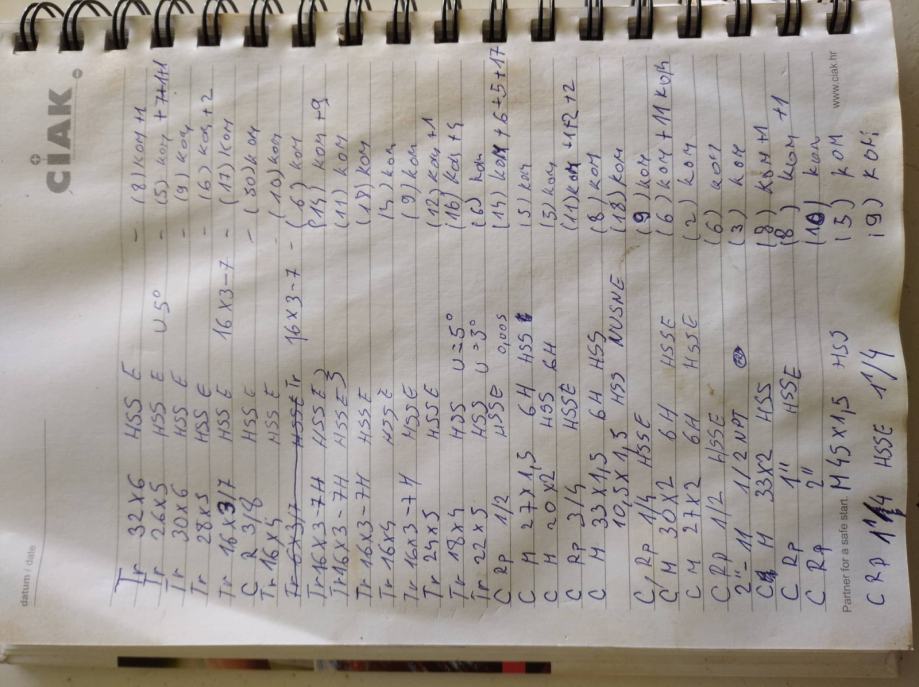 CIAK
datum / date
Tr 32 x 6 HSS E - (8) KOM +1
Tr 26 x 5 HSS E U 5° - (5) KOM +7+1+1
Tr 30 x 6 HSS E - (9) KOM
Tr 28 x 5 HSS E - (6) KOM +2
Tr 16 x 3/7 HSS E 16 x 3-7 - (17) KOM
C R 3/8 HSS E - (30) KOM
Tr 16 x 4 HSS E - (10) KOM
Tr 16x3/7 HSSE Tr 16 x 3-7 - (6) KOM
Tr 16 x 3-7H HSS E (14) KOM +9
Tr 16 x 3-7H HSS E (11) KOM
Tr 16 x 3-7H HSS E (18) KOM
Tr 16 x 4 HSS E KOM
Tr 16 x 3-7H HSS E (9) KOM
Tr 24 x 5 HSS E (12) KOM +1
Tr 18 x 4 HSS U=5° (16) KOM +4
Tr 22 x 5 HSS U=3° (6) KOM
C RP 1/2 HSSE 0,005 (14) KOM +6+5+17
C M 27 x 1,5 6H HSS (5) KOM
C M 20 x 2 HSS 6H (5) KOM
C RP 3/4 HSSE (11) KOM +1+2+2
C M 33 x 1,5 6H HSS (8) KOM
10,5 x 1,5 HSS NUSNE (18) KOM
C/ RP 1/4 HSSE (9) KOM
C M 30 x 2 6H HSSE (6) KOM +11 KOM
C M 27 x 2 6H HSSE (2) KOM
C RP 1/2 HSSE (6) KOM
2"- 11 1/2 NPT (3) KOM
C M 33 x 2 HSS KOM +1
C RP 1" HSSE (8) KOM +1
C RP 2" (10) KOM
M 45 x 1,5 HSS (5) KOM
Partner for a safe start. www.ciak.hr
C RP 1 1/4 HSSE 1/4 (9) KOM